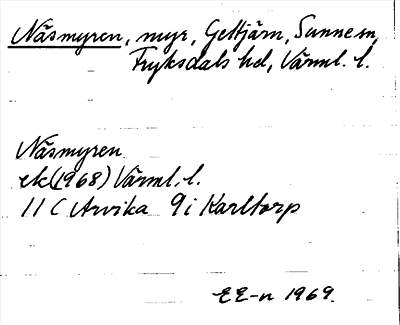 Näsmyren, myr, Gettjärn, Sunne sn,
Fryksdals hd, Värml. l.
Näsmyren
ek (1968) Värml. l.
11 C Arvika 9i Karltorp
EE-n 1969.